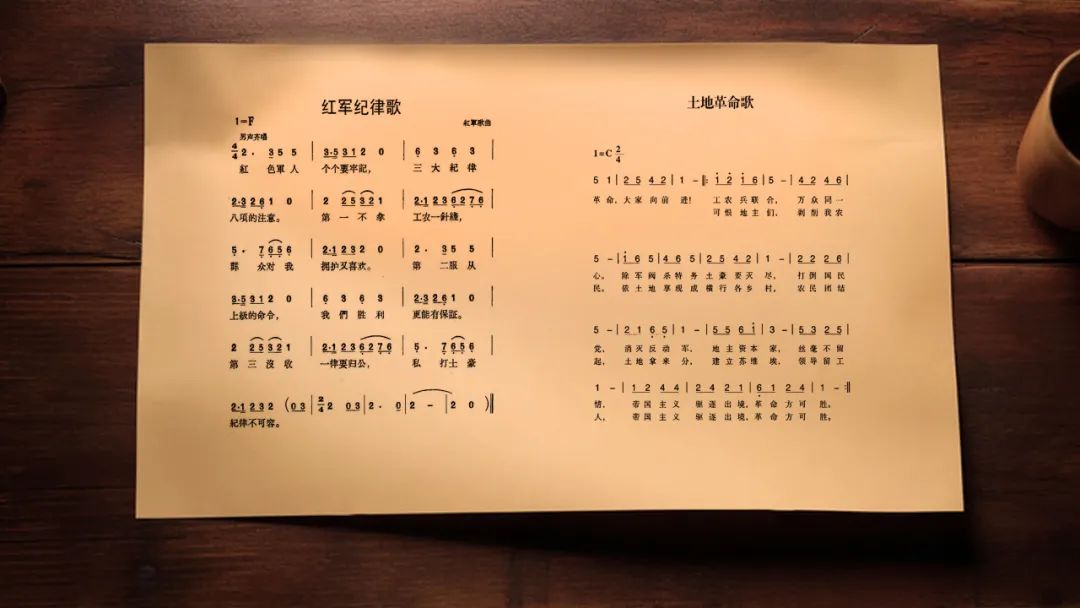 红军纪律歌
1=F
紅軍歌曲
男声齐唱
4/4 2· 3 5 5 | 3·5 3 1 2 0 | 6 3 6 3 |
紅 色軍 人 个个要牢記, 三 大 紀 律
2·3 2 6 1 0 | 2 2 5 3 2 1 | 2·1 2 3 6 2 7 6 |
八項的注意。 第 一 不 拿 工农一針綫,
5· 7 6 5 6 | 2·1 2 3 2 0 | 2· 3 5 5 |
群 众 对 我 拥护又喜欢。 第 二服 从
3·5 3 1 2 0 | 6 3 6 3 | 2·3 2 6 1 0 |
上級的命令, 我 們 胜 利 更能有保証。
2 2 5 3 2 1 | 2·1 2 3 6 2 7 6 | 5· 7 6 5 6 |
第 三 沒 收 一律要归公, 私 打土 豪
2·1 2 3 2 (0 3 | 2/4 2 0 3 | 2· 0 | 2 - | 2 0 )‖
紀律不可容。
土地革命歌
1=C 2/4
5 1 | 2 5 4 2 | 1 - ‖: 1 2 1 6 | 5 - | 4 2 4 6 |
革命,大家 向前 进! 工农 兵 联 合, 万 众 同 一
可恨 地 主 们, 剥 削 我 农
5 - | 1 6 5 | 4 6 5 | 2 5 4 2 | 1 - | 2 2 2 6 |
心。 除军 阀 杀特 务 土 豪 要 灭 尽, 打 倒 国 民
民。 依土 地 享现 成 横 行 各 乡 村, 农 民 团 结
5 - | 2 1 6 5 | 1 - | 5 5 6 1 | 3 - | 5 3 2 5 |
党, 消 灭 反 动 军, 地 主 资 本 家, 丝 毫 不 留
起, 土 地 拿 来 分, 建 立 苏 维 埃, 领 导 留 工
1 - | 1 2 4 4 | 2 4 2 1 | 6 1 2 4 | 1 - :‖
情, 帝 国 主 义 驱 逐 出 境,革 命 方 可 胜。
人, 帝 国 主 义 驱 逐 出 境,革 命 方 可 胜。